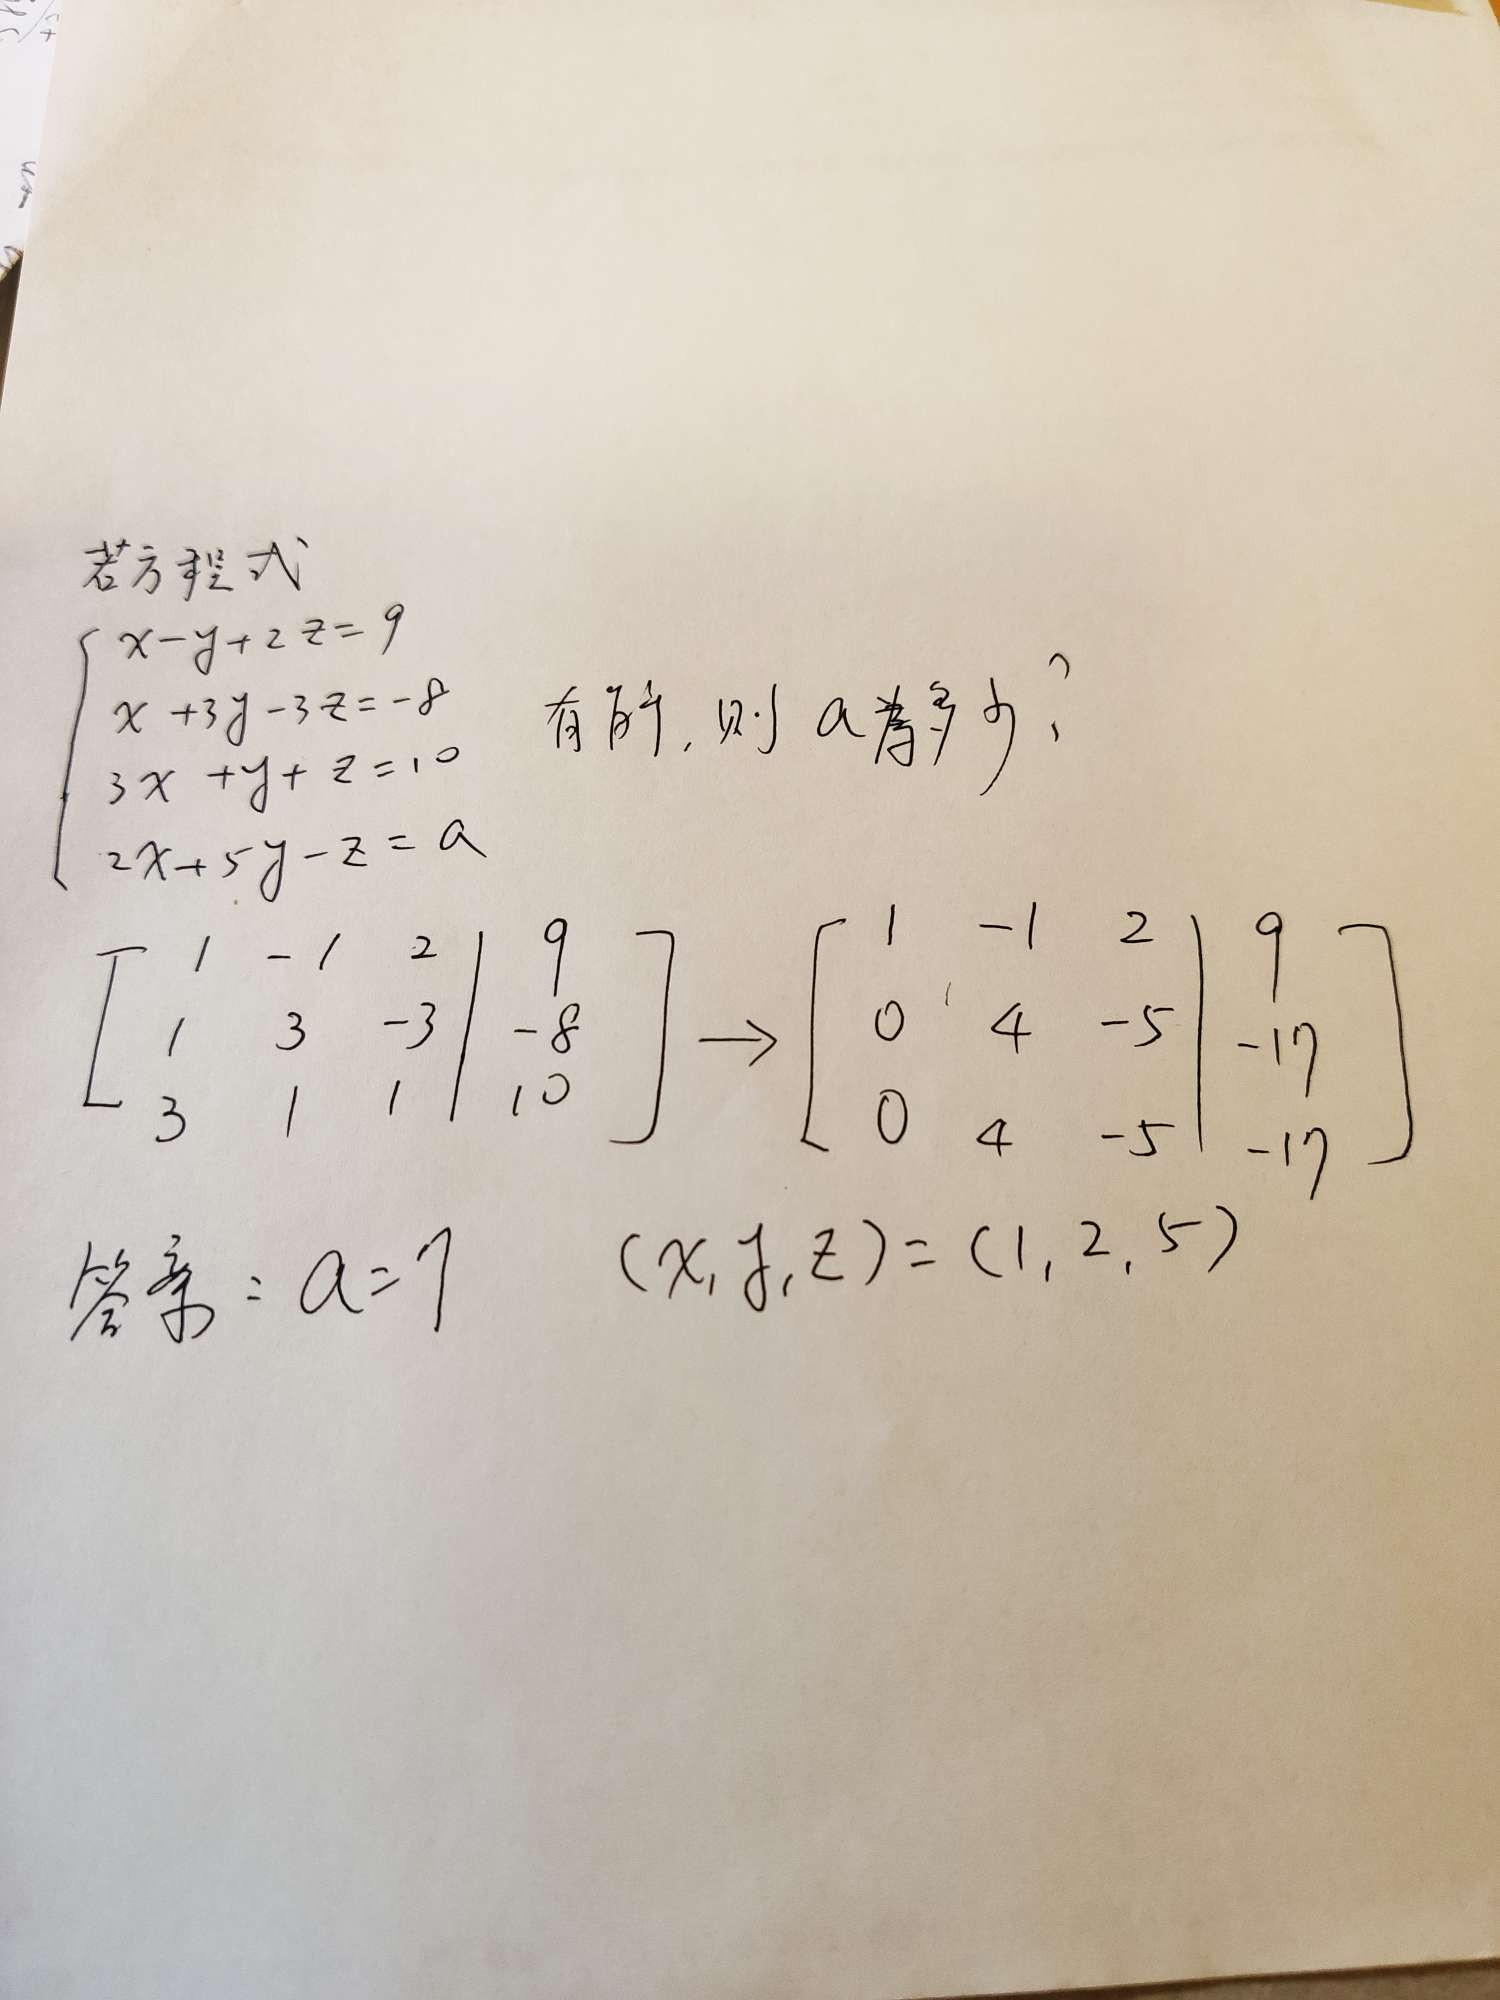 若方程式
x-y+2z=9
x+3y-3z=-8
3x+y+z=10
2x+5y-z=a
有解,則a為多少?
1 -1 2 | 9
1 3 -3 | -8
3 1 1 | 10
→
1 -1 2 | 9
0 4 -5 | -17
0 4 -5 | -17
答案:a=7 (x,y,z)=(1,2,5)